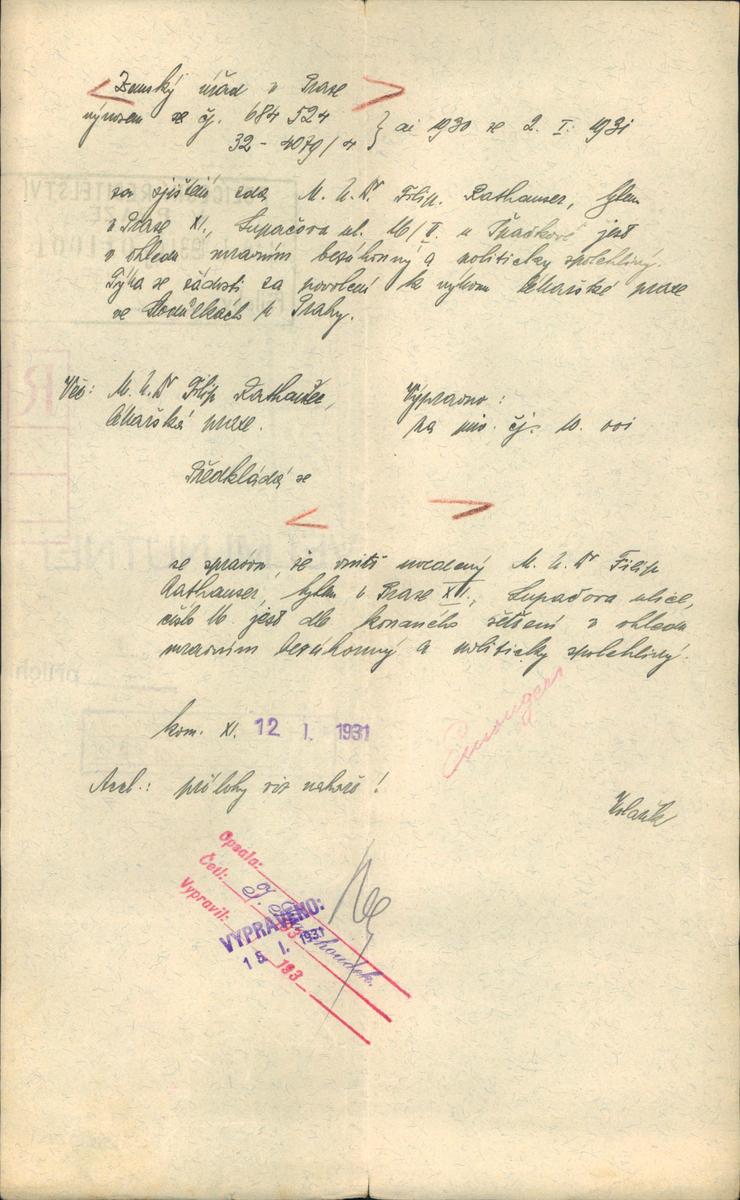 Zemský úřad v Praze
výnosem ze čj. 684 524
32 - 4079/4 } ai 1930 ze 2. I. 1931
za zjištění zda, M. U. Dr Filip. Rathauser, bytem
v Praze XI., Lupačova ul. 16/II. u Tkadlčové jest
v ohledu mravním bezúhonný a politicky spolehlivý.
Týká se žádosti za povolení k výkonu lékařské praxe
ve Stodůlkách u Prahy.
Věc: M. U. Dr Filip Rathauser,
lékařská praxe.
Vypraveno:
na při. čj. 10. 001
Předkládá se
se zprávou, že vnitř uvedený M. U. Dr Filip
Rathauser, bytem v Praze XI., Lupačova ulice,
číslo 16. jest dle konaného šetření v ohledu
mravním bezúhonný a politicky spolehlivý.
kom. XI. 12 I. 1931
přílohy viz nahoře!
Opsala:
Četl:
Vypravil:
VYPRAVENO:
15 I. 1931
193